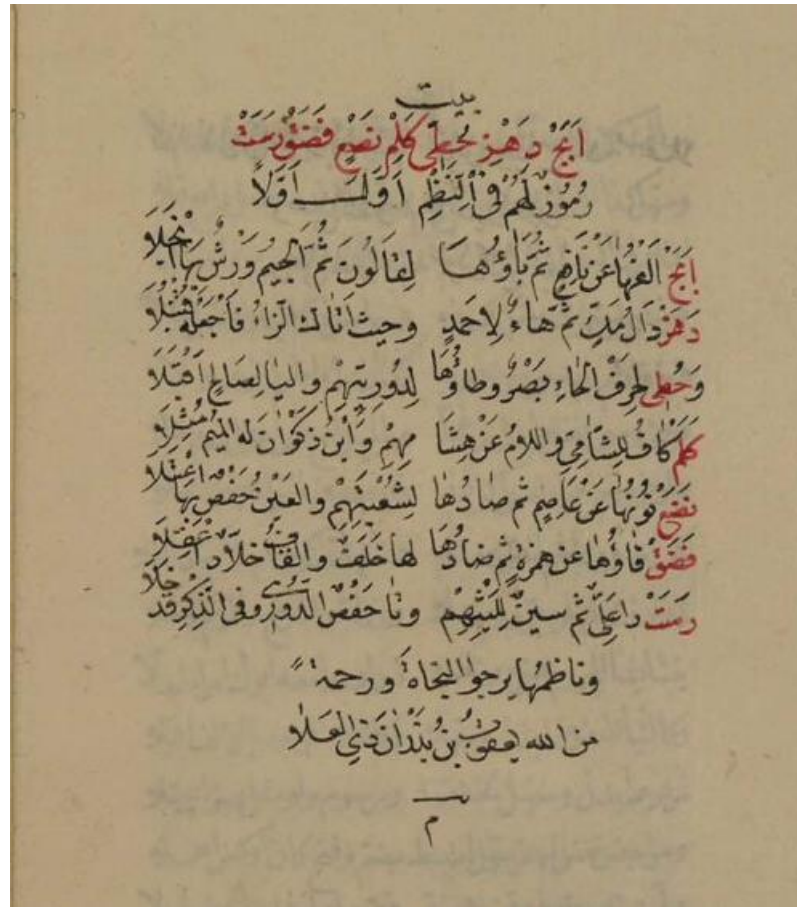 بيت
اَبَجْ دَهَزْ حُطِّي كَلَمْ نَصَعْ فَضَقْ رَسَتْ
رُمُوزٌ لَهُمْ فِي النَّظْمِ اَوَّلَ اَوَّلَا
اَبَجْ اَلِفُهَا عَنْ نَافِعٍ ثُمَّ بَاؤُهَا لِقَالُونَ ثُمَّ الْجِيمُ وَرْشٌ بِهَا انْجَلَا
دَهَزْ دَالُ مَكٍّ ثُمَّ هَاءٌ لِاَحْمَدٍ وحيث اَتَاكَ الزَاءُ فَاجْعَلْهُ قُنْبُلَا
وَحُطِّي لحرف الحاءِ بَصْرٌ وطاؤُهَا لِدُورِيِّهِمْ واليا لِصالحٍ اقْبَلَا
كَلَمْ كَافُ للِشَّامِيِّ واللامُ عَنْ هِشَا مِهِمْ وَابْنُ ذَكْوَانَ له الميمُ مُثِّلَا
نَصَعْ نُونُهَا عَنْ عَاصِمٍ ثم صَادُهَا لِشُعْبَتِهِمْ والعَيْنُ حَفْصٌ بِهَا اعْتَلَا
فَضَقْ فَاؤُهَا عن حمزةٍ ثم ضَادُهَا لها خَلَفٌ والقافُ خلَّادٌ
رَسَتْ را عَلِيٍّ ثم سينٌ لِلَيْثِهِمْ وتا حَفْصٌ الدُّورِي وفي الذِّكْرِ قد خَلَا
وناظمها يرجوا النجاةَ ورحمةً
من الله يعقوبُ بن بَدْرَانَ ذي العَلَا
م